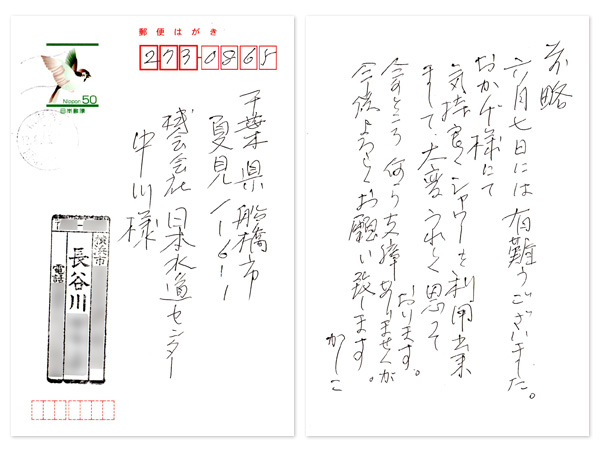 郵便はがき
273-0865
Nippon 50
日本郵便
千葉県船橋市
夏見1-16-1
株式会社 日本水道センター
中川様
〒
浜浜市
長谷川
電話
前略
六月七日には有難うございました。
おかげ様にて
気持良くシャワーを利用出来
まして、大変うれしく思って
おります。
今のところ何ら支障ありませんが
今後よろしくお願い致します。
かしこ